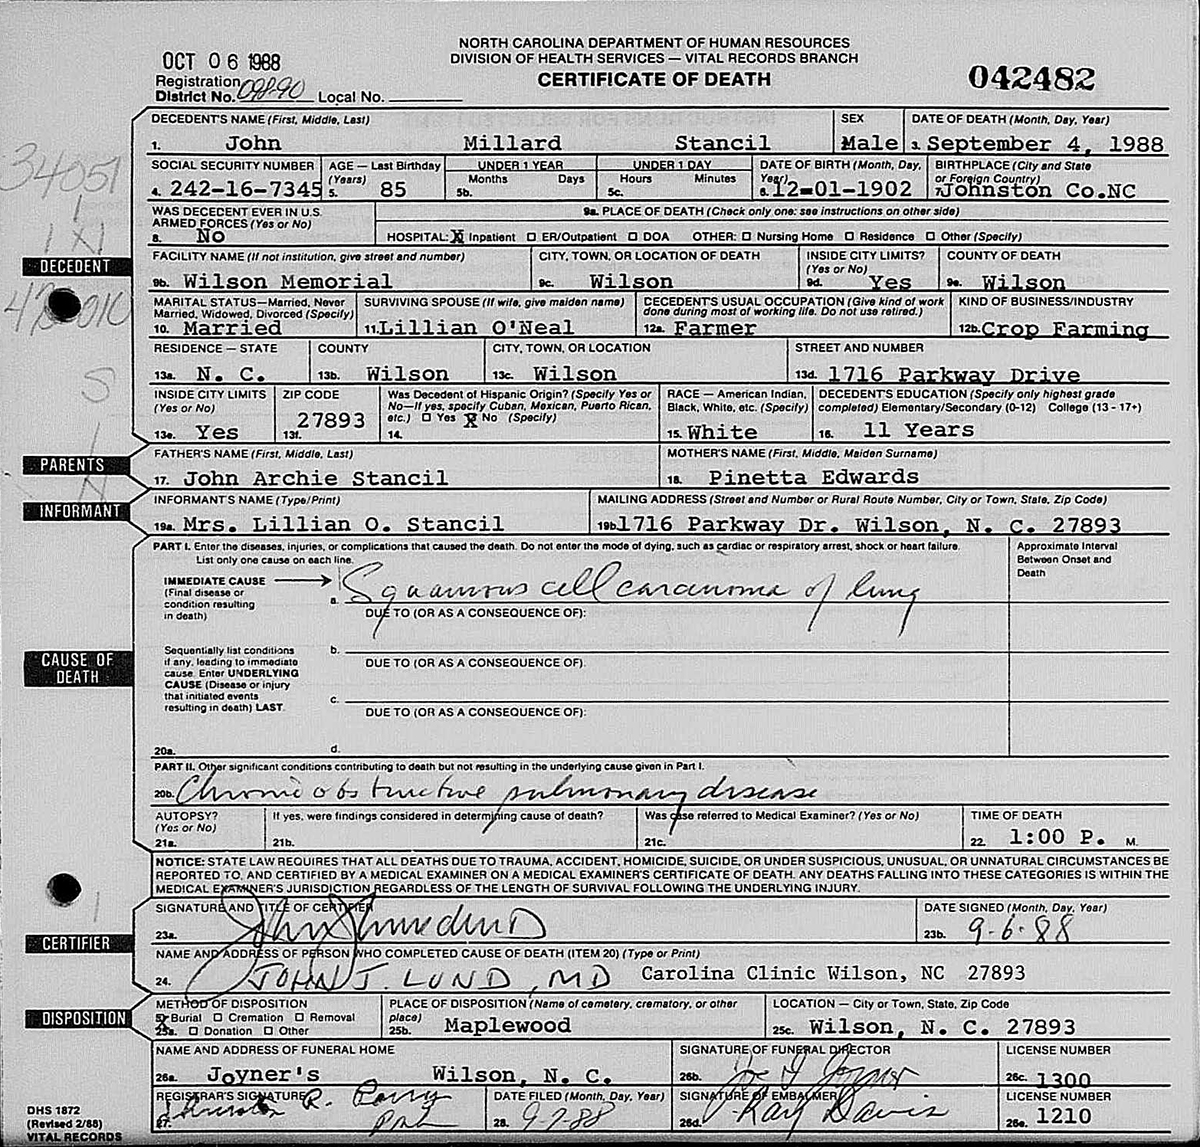 NORTH CAROLINA DEPARTMENT OF HUMAN RESOURCES
DIVISION OF HEALTH SERVICES — VITAL RECORDS BRANCH
CERTIFICATE OF DEATH
OCT 06 1988
042482
Registration
District No. 09890 Local No.
DECEDENT'S NAME (First, Middle, Last) SEX DATE OF DEATH (Month, Day, Year)
1. John Millard Stancil Male 3. September 4, 1988
SOCIAL SECURITY NUMBER AGE — Last Birthday (Years) UNDER 1 YEAR UNDER 1 DAY DATE OF BIRTH (Month, Day, Year) BIRTHPLACE (City and State or Foreign Country)
Months Days Hours Minutes
4. 242-16-7345 5. 85 5b. 5c. 6. 12-01-1902 7. Johnston Co.NC
WAS DECEDENT EVER IN U.S. ARMED FORCES (Yes or No) 9a. PLACE OF DEATH (Check only one: see instructions on other side)
8. No HOSPITAL: X Inpatient ☐ ER/Outpatient ☐ DOA OTHER: ☐ Nursing Home ☐ Residence ☐ Other (Specify)
DECEDENT
FACILITY NAME (If not institution, give street and number) CITY, TOWN, OR LOCATION OF DEATH INSIDE CITY LIMITS? (Yes or No) COUNTY OF DEATH
9b. Wilson Memorial 9c. Wilson 9d. Yes 9e. Wilson
MARITAL STATUS—Married, Never Married, Widowed, Divorced (Specify) SURVIVING SPOUSE (If wife, give maiden name) DECEDENT'S USUAL OCCUPATION (Give kind of work done during most of working life. Do not use retired.) KIND OF BUSINESS/INDUSTRY
10. Married 11. Lillian O'Neal 12a. Farmer 12b. Crop Farming
RESIDENCE — STATE COUNTY CITY, TOWN, OR LOCATION STREET AND NUMBER
13a. N. C. 13b. Wilson 13c. Wilson 13d. 1716 Parkway Drive
INSIDE CITY LIMITS (Yes or No) ZIP CODE Was Decedent of Hispanic Origin? (Specify Yes or No—If yes, specify Cuban, Mexican, Puerto Rican, etc.) ☐ Yes X No (Specify) RACE — American Indian, Black, White, etc. (Specify) DECEDENT'S EDUCATION (Specify only highest grade completed) Elementary/Secondary (0-12) College (13 - 17+)
13e. Yes 13f. 27893 14. 15. White 16. 11 Years
PARENTS
FATHER'S NAME (First, Middle, Last) MOTHER'S NAME (First, Middle, Maiden Surname)
17. John Archie Stancil 18. Pinetta Edwards
INFORMANT
INFORMANT'S NAME (Type/Print) MAILING ADDRESS (Street and Number or Rural Route Number, City or Town, State, Zip Code)
19a. Mrs. Lillian O. Stancil 19b 1716 Parkway Dr. Wilson, N. C. 27893
PART I. Enter the diseases, injuries, or complications that caused the death. Do not enter the mode of dying, such as cardiac or respiratory arrest, shock or heart failure. List only one cause on each line. Approximate Interval Between Onset and Death
IMMEDIATE CAUSE (Final disease or condition resulting in death)
a. Squamous cell carcinoma of lung
DUE TO (OR AS A CONSEQUENCE OF):
CAUSE OF DEATH
Sequentially list conditions if any, leading to immediate cause. Enter UNDERLYING CAUSE (Disease or injury that initiated events resulting in death) LAST.
b.
DUE TO (OR AS A CONSEQUENCE OF):
c.
DUE TO (OR AS A CONSEQUENCE OF):
20a. d.
PART II. Other significant conditions contributing to death but not resulting in the underlying cause given in Part I.
20b. Chronic obstructive pulmonary disease
AUTOPSY? (Yes or No) If yes, were findings considered in determining cause of death? Was case referred to Medical Examiner? (Yes or No) TIME OF DEATH
21a. 21b. 21c. 22. 1:00 P. M.
NOTICE: STATE LAW REQUIRES THAT ALL DEATHS DUE TO TRAUMA, ACCIDENT, HOMICIDE, SUICIDE, OR UNDER SUSPICIOUS, UNUSUAL, OR UNNATURAL CIRCUMSTANCES BE
REPORTED TO, AND CERTIFIED BY A MEDICAL EXAMINER ON A MEDICAL EXAMINER'S CERTIFICATE OF DEATH. ANY DEATHS FALLING INTO THESE CATEGORIES IS WITHIN THE
MEDICAL EXAMINER'S JURISDICTION REGARDLESS OF THE LENGTH OF SURVIVAL FOLLOWING THE UNDERLYING INJURY.
CERTIFIER
SIGNATURE AND TITLE OF CERTIFIER DATE SIGNED (Month, Day, Year)
23a. John J Lund MD 23b. 9-6-88
NAME AND ADDRESS OF PERSON WHO COMPLETED CAUSE OF DEATH (ITEM 20) (Type or Print)
24. JOHN J. LUND, MD Carolina Clinic Wilson, NC 27893
DISPOSITION
METHOD OF DISPOSITION PLACE OF DISPOSITION (Name of cemetery, crematory, or other place) LOCATION — City or Town, State, Zip Code
X Burial ☐ Cremation ☐ Removal
25a. ☐ Donation ☐ Other 25b. Maplewood 25c. Wilson, N. C. 27893
NAME AND ADDRESS OF FUNERAL HOME SIGNATURE OF FUNERAL DIRECTOR LICENSE NUMBER
26a. Joyner's Wilson, N. C. 26b. Joyner 26c. 1300
REGISTRAR'S SIGNATURE DATE FILED (Month, Day, Year) SIGNATURE OF EMBALMER LICENSE NUMBER
27. R. Parry 28. 9-7-88 26d. Ray Davis 26e. 1210
DHS 1872
(Revised 2/88)
VITAL RECORDS
34051
1
1X1
S